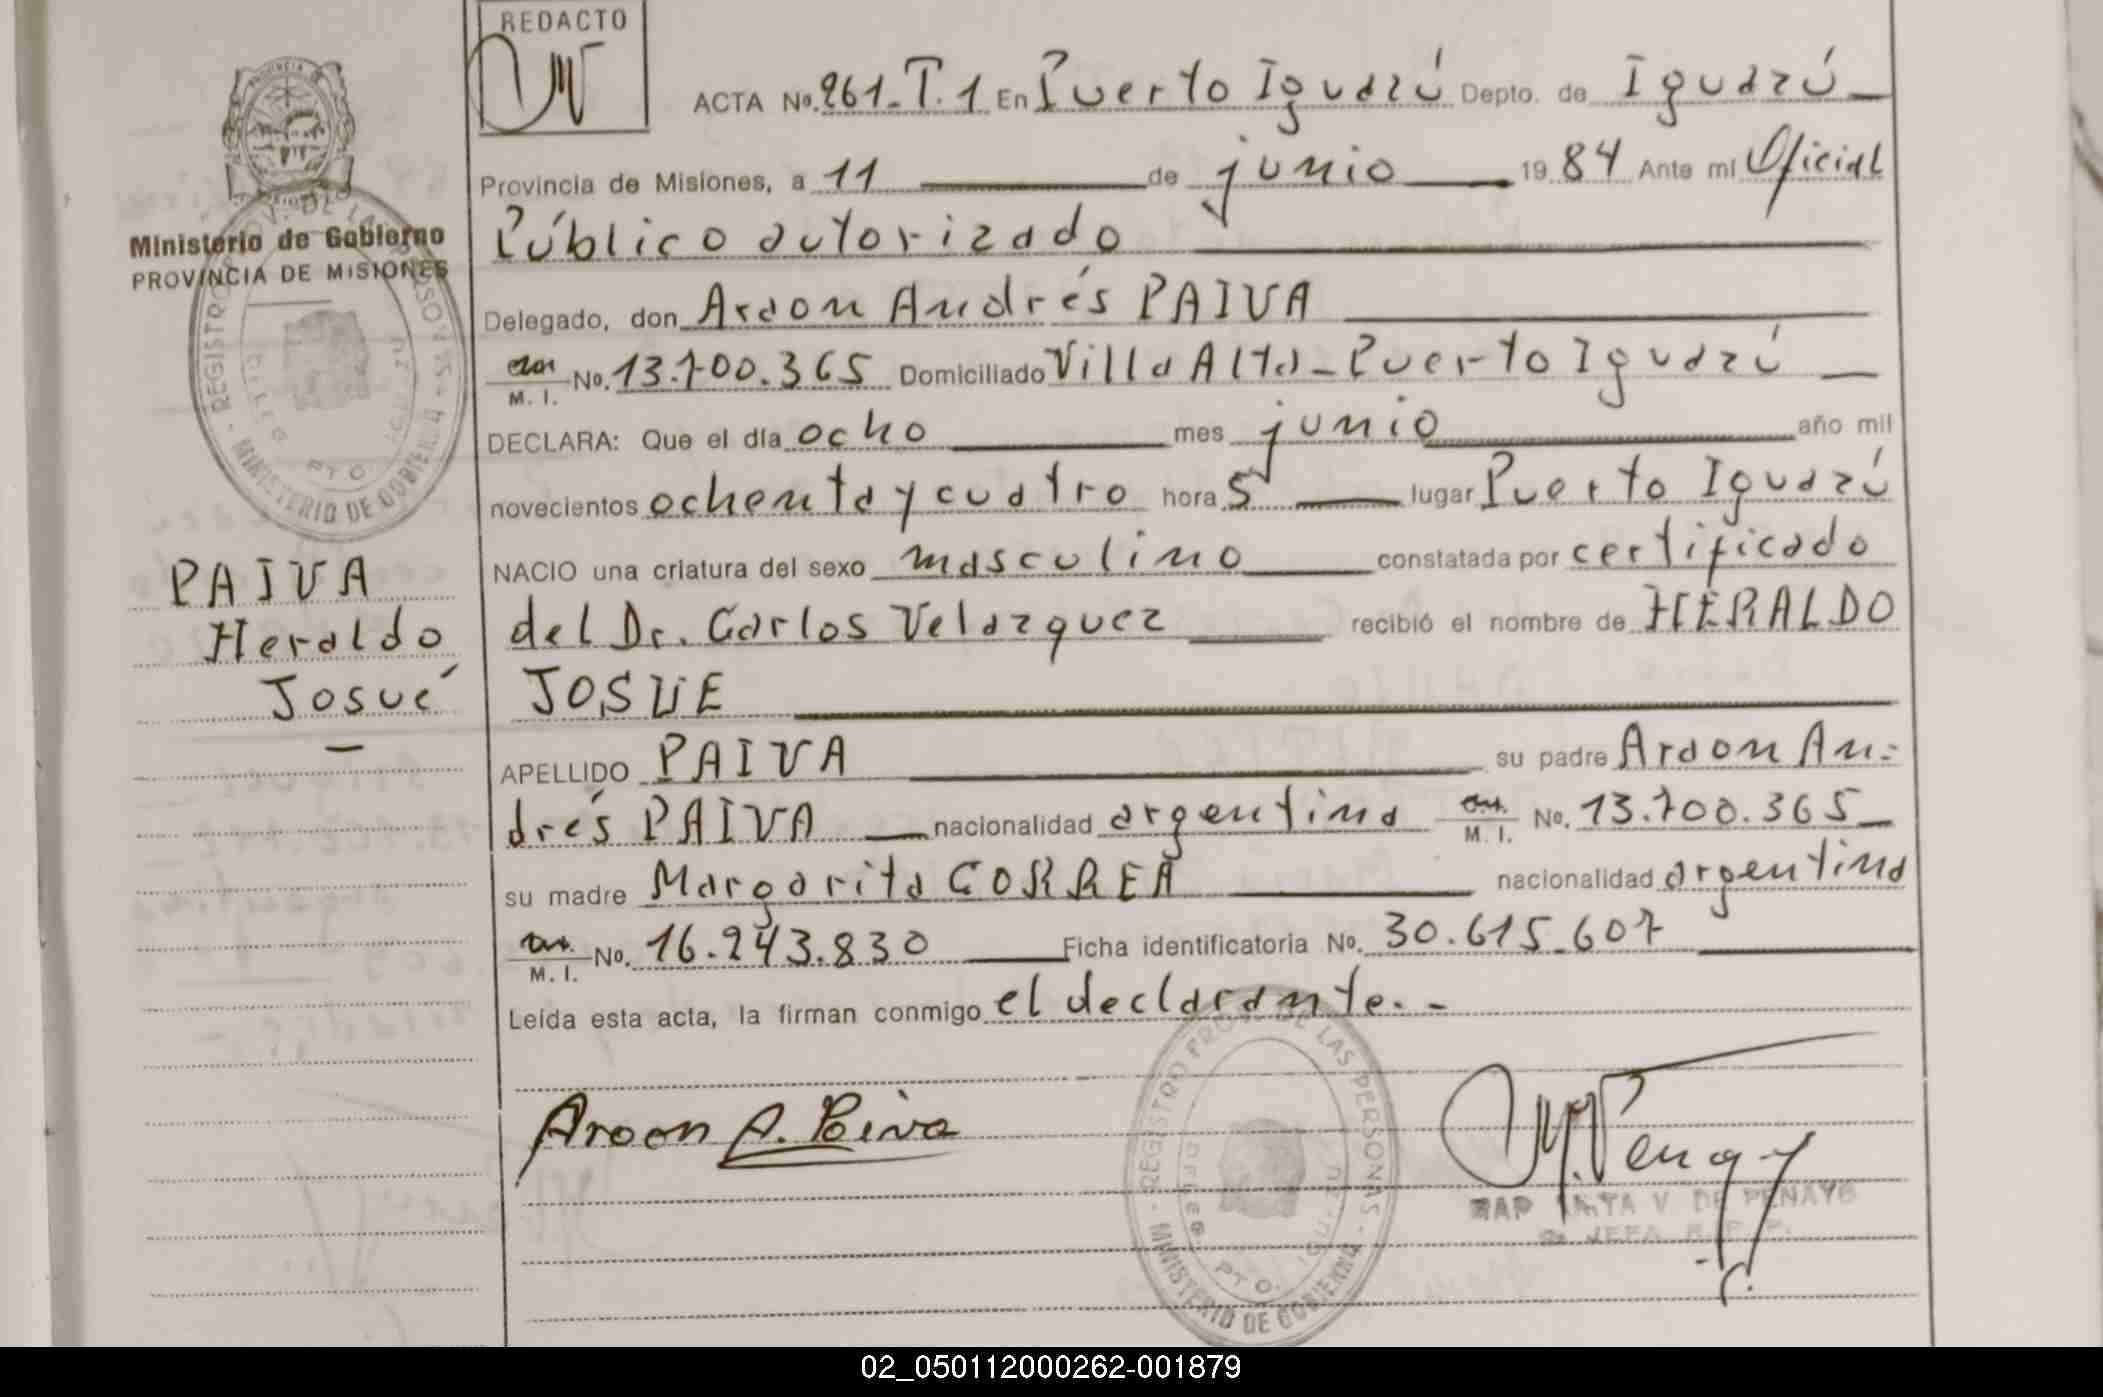 REDACTO
ACTA No. 261_T.1 En Puerto Iguazú Depto. de Iguazú
Provincia de Misiones, a 11 de junio 19 84 Ante mí Oficial
Público autorizado
Delegado, don Aroon Andrés PAIVA
M. I. No. 13.700.365 Domiciliado Villa Alta - Puerto Iguazú
DECLARA: Que el día ocho mes junio año mil
novecientos ochenta y cuatro hora 5 lugar Puerto Iguazú
NACIO una criatura del sexo masculino constatada por certificado
del Dr. Carlos Velazquez recibió el nombre de HERALDO
JOSUE
APELLIDO PAIVA su padre Aroon An-
drés PAIVA nacionalidad argentina M. I. No. 13.700.365
su madre Margarita CORREA nacionalidad argentina
M. I. No. 16.243.830 Ficha identificatoria No. 30.615.607
Leída esta acta, la firman conmigo el declarante. -
Ministerio de Gobierno
PROVINCIA DE MISIONES
PAIVA
Heraldo
Josué
Aroon A. Paiva
REGISTRO PROV. DE LAS PERSONAS
MINISTERIO DE GOBIERNO
02_050112000262-001879